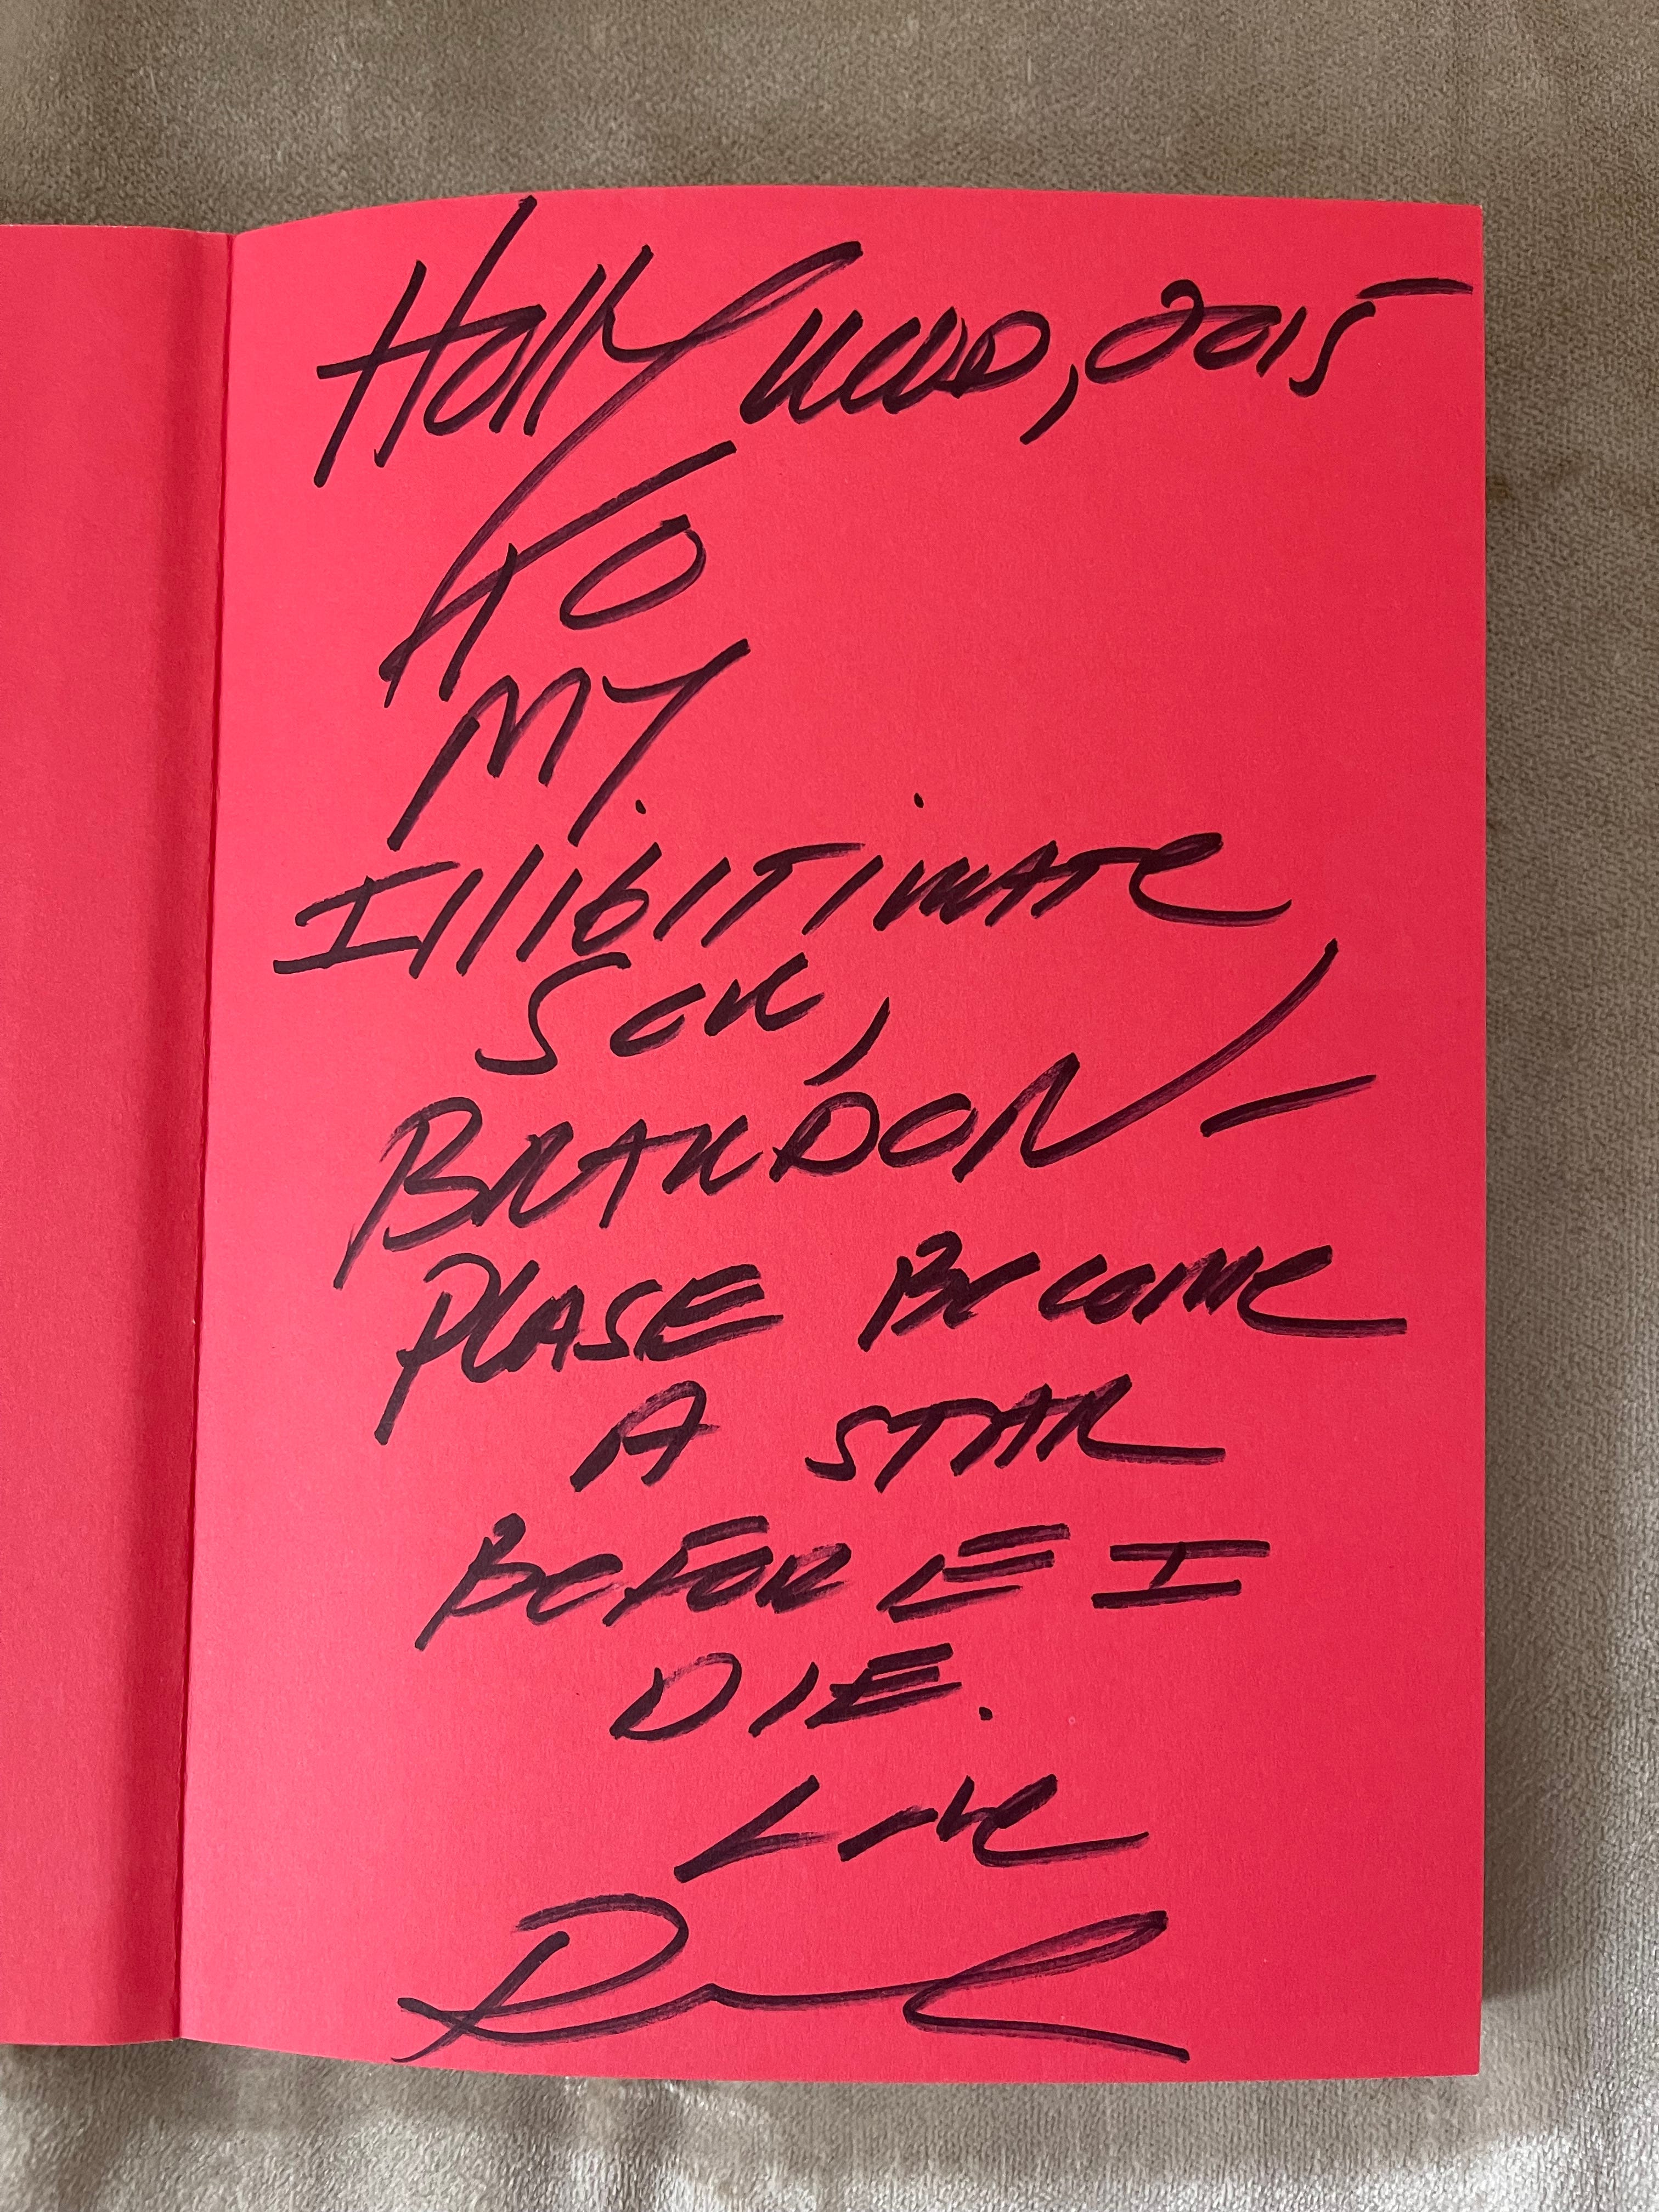 Hollywood, 2015
TO
MY
IllIGITIMATE
SON,
BRANDON—
PLEASE BECOME
A STAR
BEFORE I
DIE.
Love